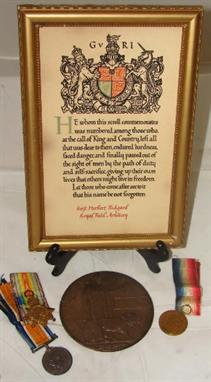 G V R I
HE whom this scroll commemorates
was numbered among those who,
at the call of King and Country, left all
that was dear to them, endured hardness,
faced danger, and finally passed out of
the sight of men by the path of duty
and self-sacrifice, giving up their own
lives that others might live in freedom.
Let those who come after see to it
that his name be not forgotten.
Herbert
Royal Field Artillery